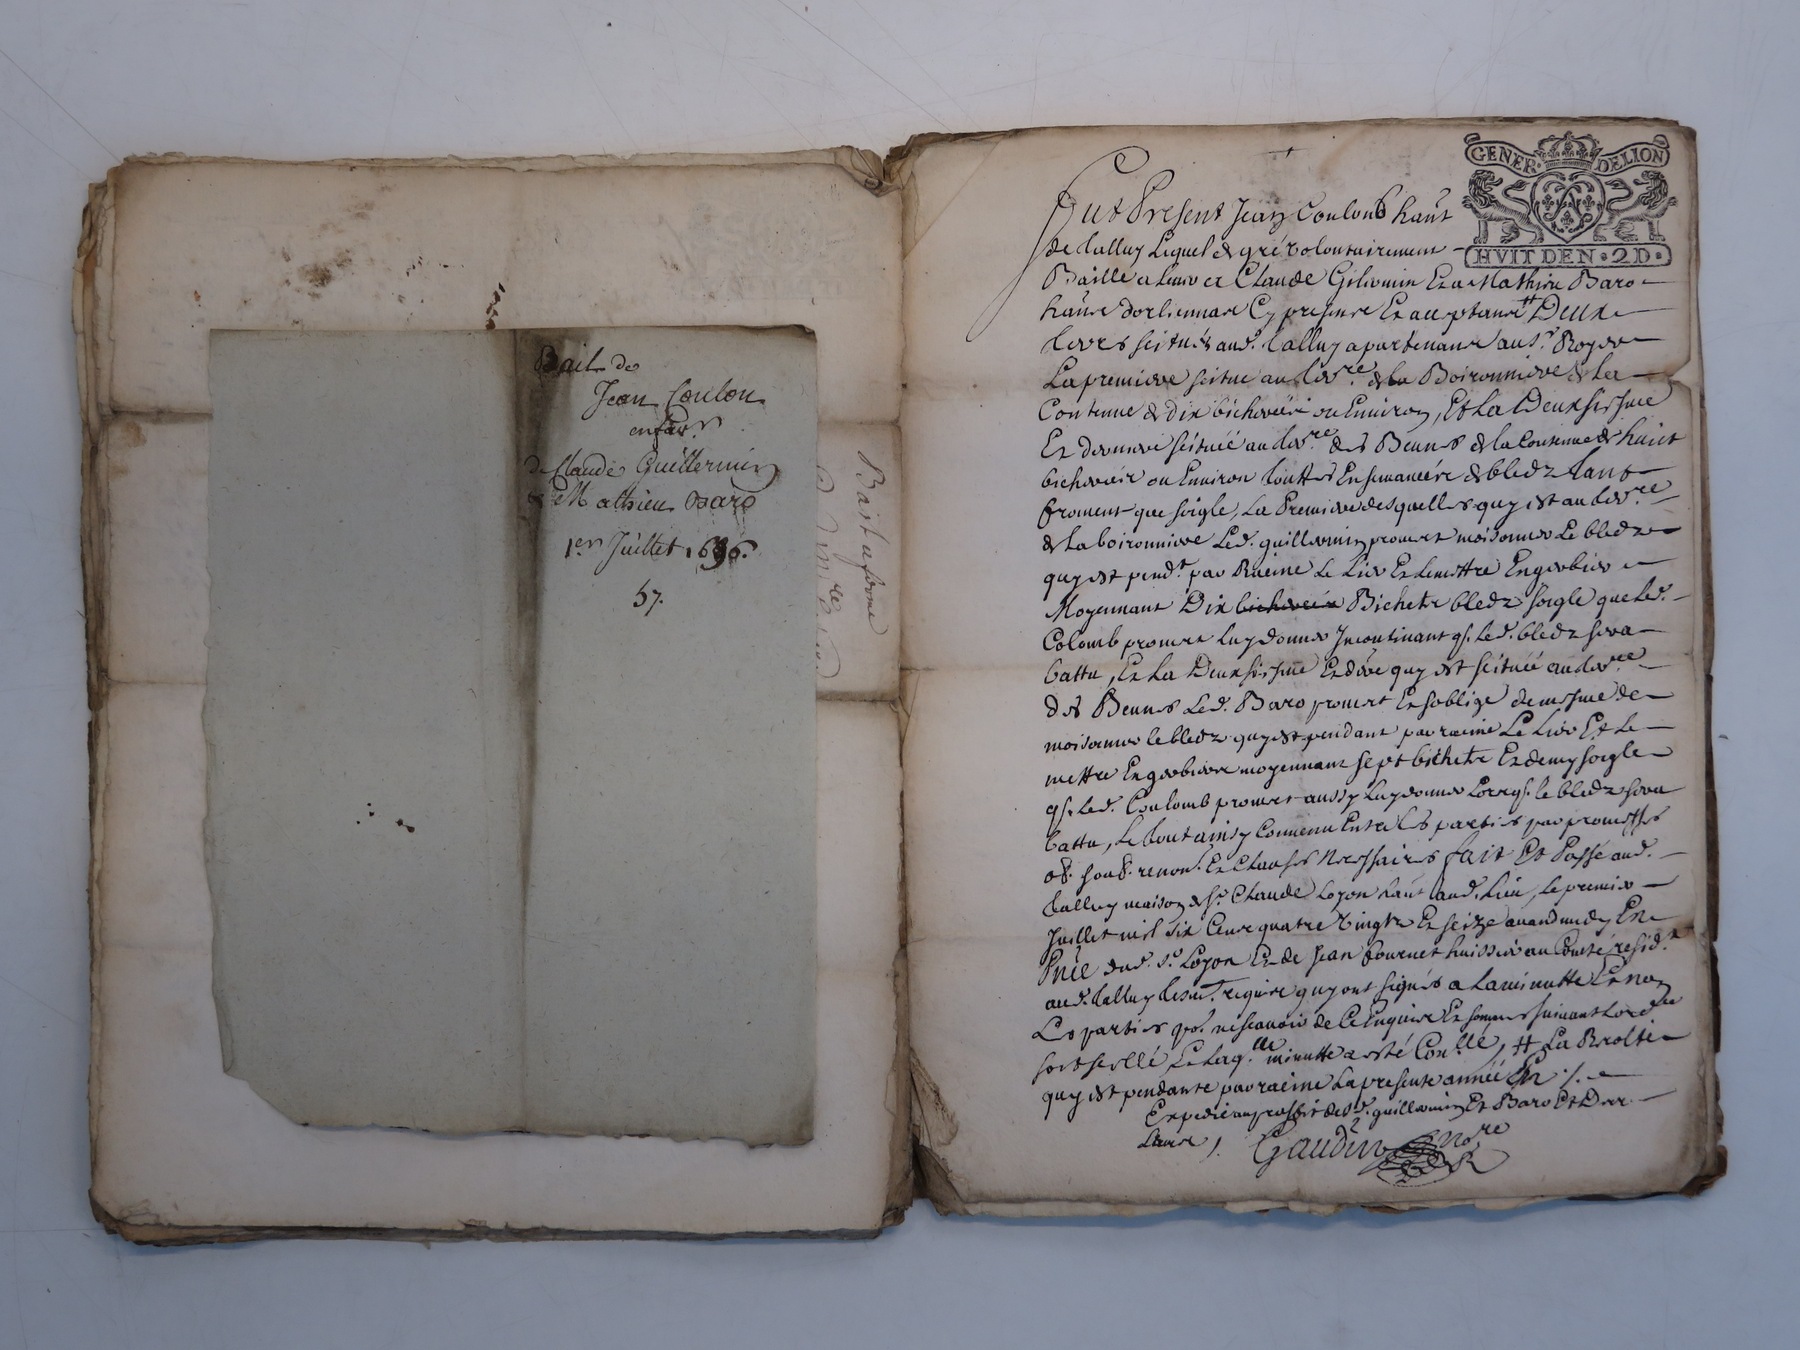 Bail de
Jean Coulon
en fav.r
de Claude Guillermin
et Mathieu Baro
1er Juillet 1696.
57.
Bail a ferme
GENER. DELION
HVIT DEN. 2 D.
Fut Present Jean Coulomb hant
de Lalluy Lequel de gré volontairement
Baille a Claude Gilermin Et a Mathieu Baro
Cy presens Et aceptans # Deux
terres scitués aud. Lalluy apartenans au s.r
La premiere scitue au terr.re de la Boironniere de la
Contenue de dix bicherées ou Environ, Et La Deuxsiesme
Et derniere scituée au terr.re des Bennes de la Contenue de huict
bicherées ou Environ touttes Ensemancées de bledz tant
froment que soigle, La Premiere desquelles quy est au terr.re
de La boironniere Led. guillermin promet moisonner Le bledz
quy est pend.t par Racine Le Lier Et Le mettre En gerbier
Moyennant Dix bicherées Bichets bledz soigle que Led.
Colomb promet Luy donner Incontinant q. Led. bledz sera
battu, Et La Deuxsiesme Et dre quy est scituée au terr.re
des Bennes Led. Baro promet Et soblige de mesme de
moisonner le bledz quy est pendant par racine Le Lier Et Le
mettre En gerbiere moyennant sept bichets Et demy soigle
q. Led. Coulomb promet aussy Luy donner Lors q. le bledz sera
battu, Le tout ainsy Convenu Entre Les parties par promesses
ob. soub. renon. Et Clauses Necessaires fait Et Passé aud.
Lalluy maison de s.r Claude Loyon hant aud. Lieu, Le premier
Juillet mil six Cens quatre vingts Et seize avand midy En
Pnce dud. s.r Loyon Et de Jean fournet huissier au Comté resid.t
aud. Lalluy tesm. requis quy ont signés a La minutte Et non
Les parties po.r ne scavoir de Ce Enquis Et sommes suivant Lord.ce
Et Laq.lle minutte a esté Con.llé, # La Recolte
quy est pendante par racine La presente année
Expedié au proffit desd. guillermin Et Baro Et Der
Gaudin No.re